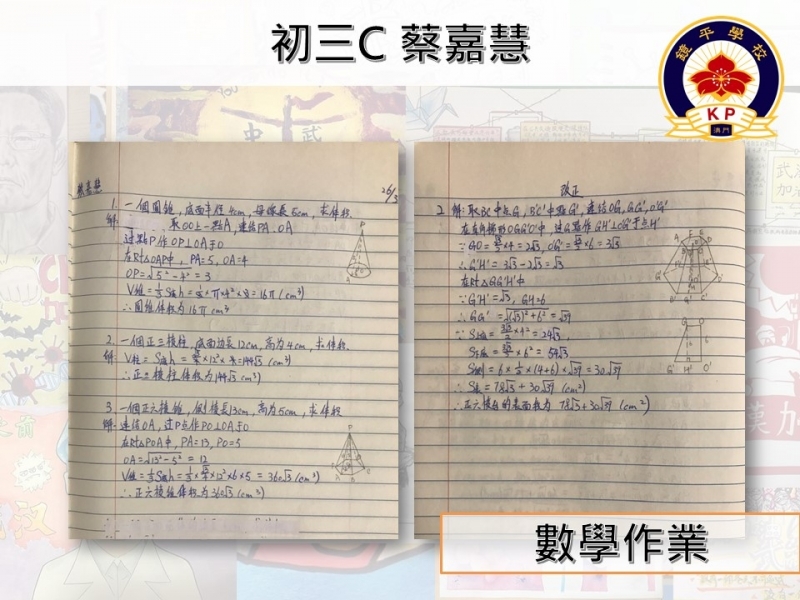 初三C 蔡嘉慧
鏡平學校
KP
澳門
蔡嘉慧
26/3
1. 一個圓錐,底面半徑4cm,母線長5cm,求体积.
解: 取⊙O上一點A,連結PA、OA
過點P作OP⊥OA于O
在Rt△OAP中,PA=5,OA=4
OP=√5²-4² = 3
V錐=⅓S底h=⅓×π×4²×3=16π (cm³)
∴圓錐体积为16π cm³
2. 一個正三棱柱,底面边长12cm,高为4cm,求体积.
解: V柱=S底h=√3/4×12²×4=144√3 (cm³)
∴正三棱柱体积为144√3 (cm³)
3. 一個正六棱錐,側棱長13cm,高为5cm,求体积
解: 連结OA,过P点作PO⊥OA于O
在Rt△POA中,PA=13,PO=5
OA=√13²-5² = 12
V錐=⅓S底h=⅓×√3/4×12²×6×5=360√3 (cm³)
∴正六棱錐体积为360√3 (cm³)
改正
2 解:取BC中点G,B'C'中點G',連结OG,GG',O'G'
在直角梯形OGG'O'中,过G點作GH'⊥O'G'于点H'
∵GO=√3/2×4=2√3,OG'=√3/2×6=3√3
∴G'H'=3√3-2√3=√3
在Rt△GG'H'中
∵G'H'=√3,GH=6
∴GG'=√(√3)²+6²=√39
∵S上底=×4²=24√3
S下底=×6²=54√3
S側=6×½×(4+6)×√39=30√39
∴S表=78√3+30√39 (cm²)
∴正六棱台的表面积为 78√3+30√39 (cm²)
數學作業